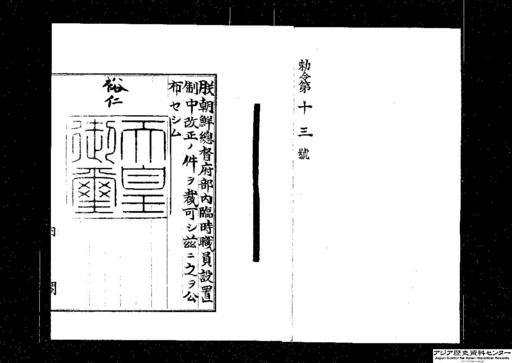 勅令第十三號
朕朝鮮總督府部內臨時職員設置
制中改正ノ件ヲ裁可シ茲ニ之ヲ公
布セシム
裕仁
天皇
御璽
内閣
アジア歴史資料センター
Japan Center for Asian Historical Records